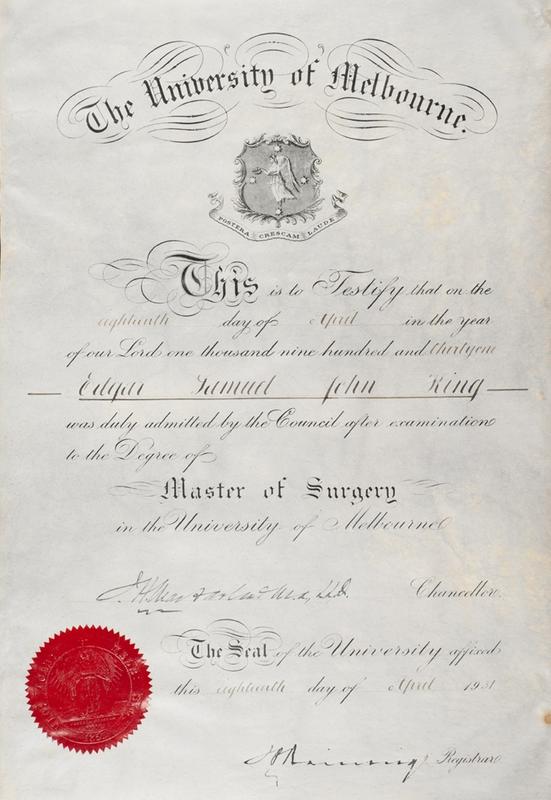 The University of Melbourne.
POSTERA CRESCAM LAUDE
This is to Testify that on the
eighteenth day of April in the year
of our Lord one thousand nine hundred and thirtyone
Edgar Samuel John King
was duly admitted by the Council after examination
to the Degree of
Master of Surgery
in the University of Melbourne
Chancellor.
The Seal of the University affixed
this eighteenth day of April 1931
Registrar.